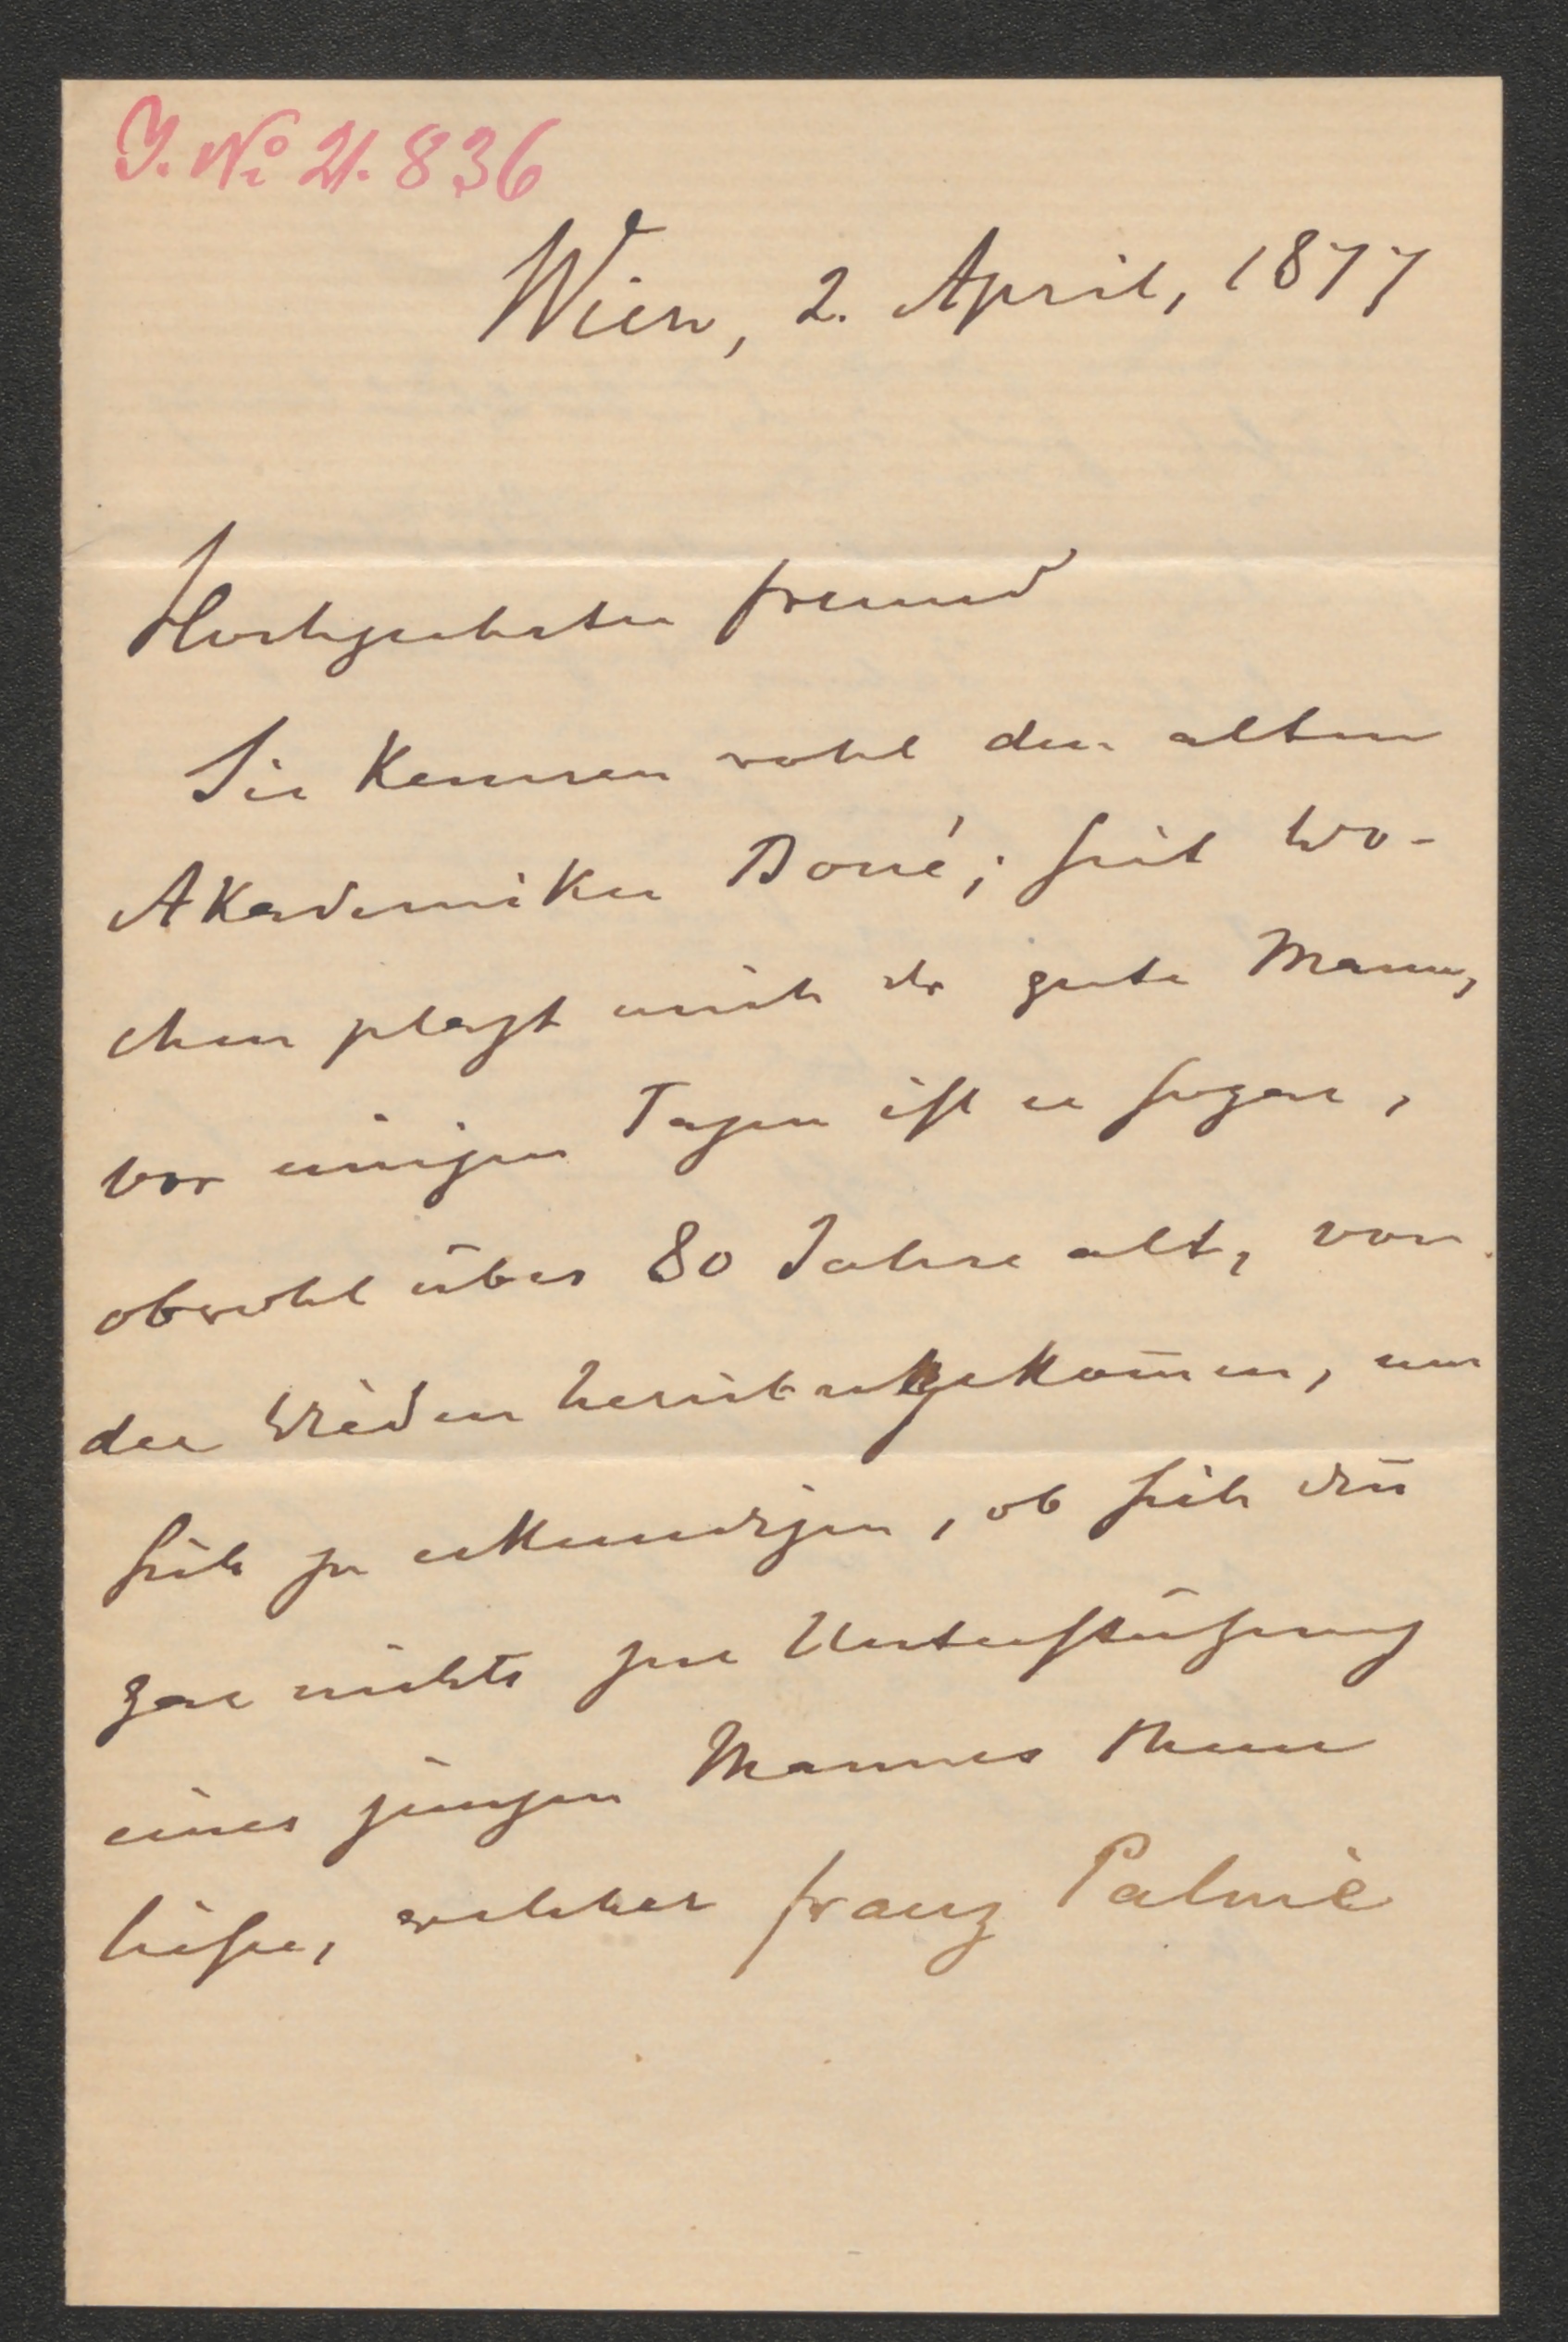 J. No 21.836
Wien, 2. April, 1877
Hochgeehrter Freund
Sie kennen wohl den alten
Akademiker Boué; seit Wo-
chen plagt mich der gute Mann,
vor einigen Tagen ist er sogar,
obwohl über 80 Jahre alt, von
der Wieden herübergekom̄en, um
sich zu erkundigen, ob sich den̄
gar nichts zur Unterstützung
eines jungen Mannes thun
ließe, welcher Franz Palmè